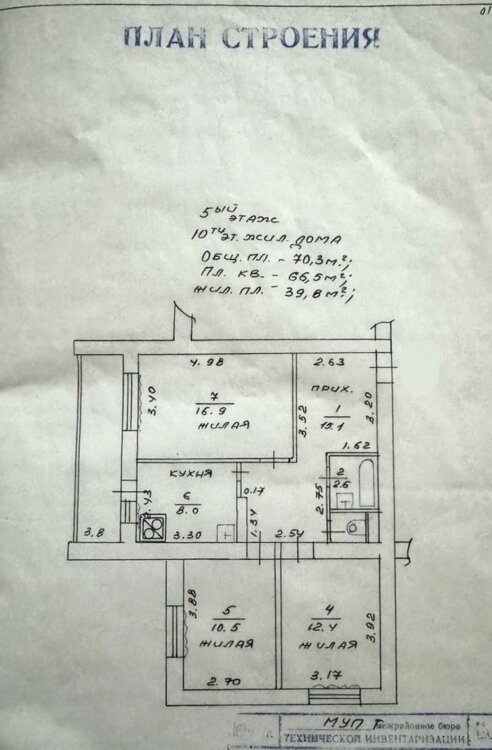 ПЛАН СТРОЕНИЯ
5ЫЙ ЭТАЖ
10ТИ ЭТ. ЖИЛ. ДОМА
ОБЩ. ПЛ. - 70,3 м²;
ПЛ. КВ. - 66,5 м²;
ЖИЛ. ПЛ. - 39,8 м²;
4.98
2.63
ПРИХ.
3.40
7
16.9
ЖИЛАЯ
3.52
1
15.1
3.20
1.62
КУХНЯ
2
2.6
2.43
6
8.0
0.17
2.75
3.8
3.30
1.34
2.54
3.88
5
10.5
ЖИЛАЯ
4
12.4
ЖИЛАЯ
3.92
2.70
3.17
МУП
межрайонное бюро
ТЕХНИЧЕСКОЙ ИНВЕНТАРИЗАЦИИ